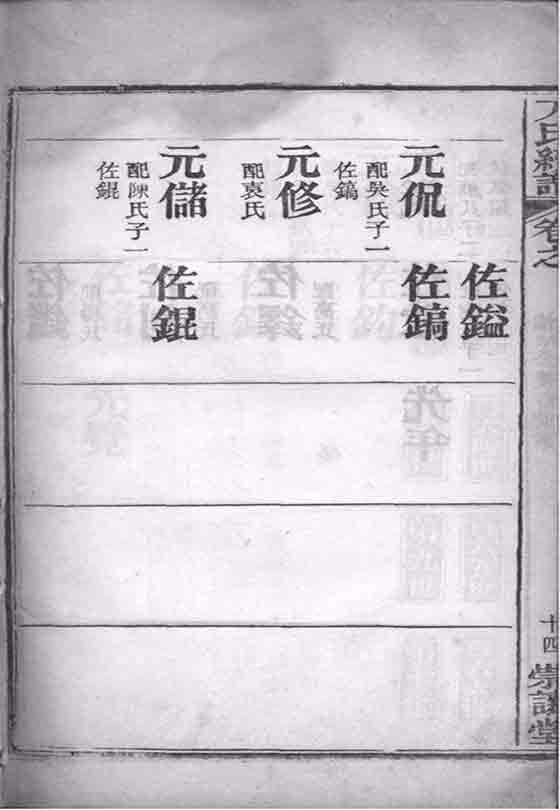 氏
卷之
十四
佐鎰
元侃
配吳氏子一
佐鎬
佐鎬
元修
配袁氏
元儲
配陳氏子一
佐錕
佐錕